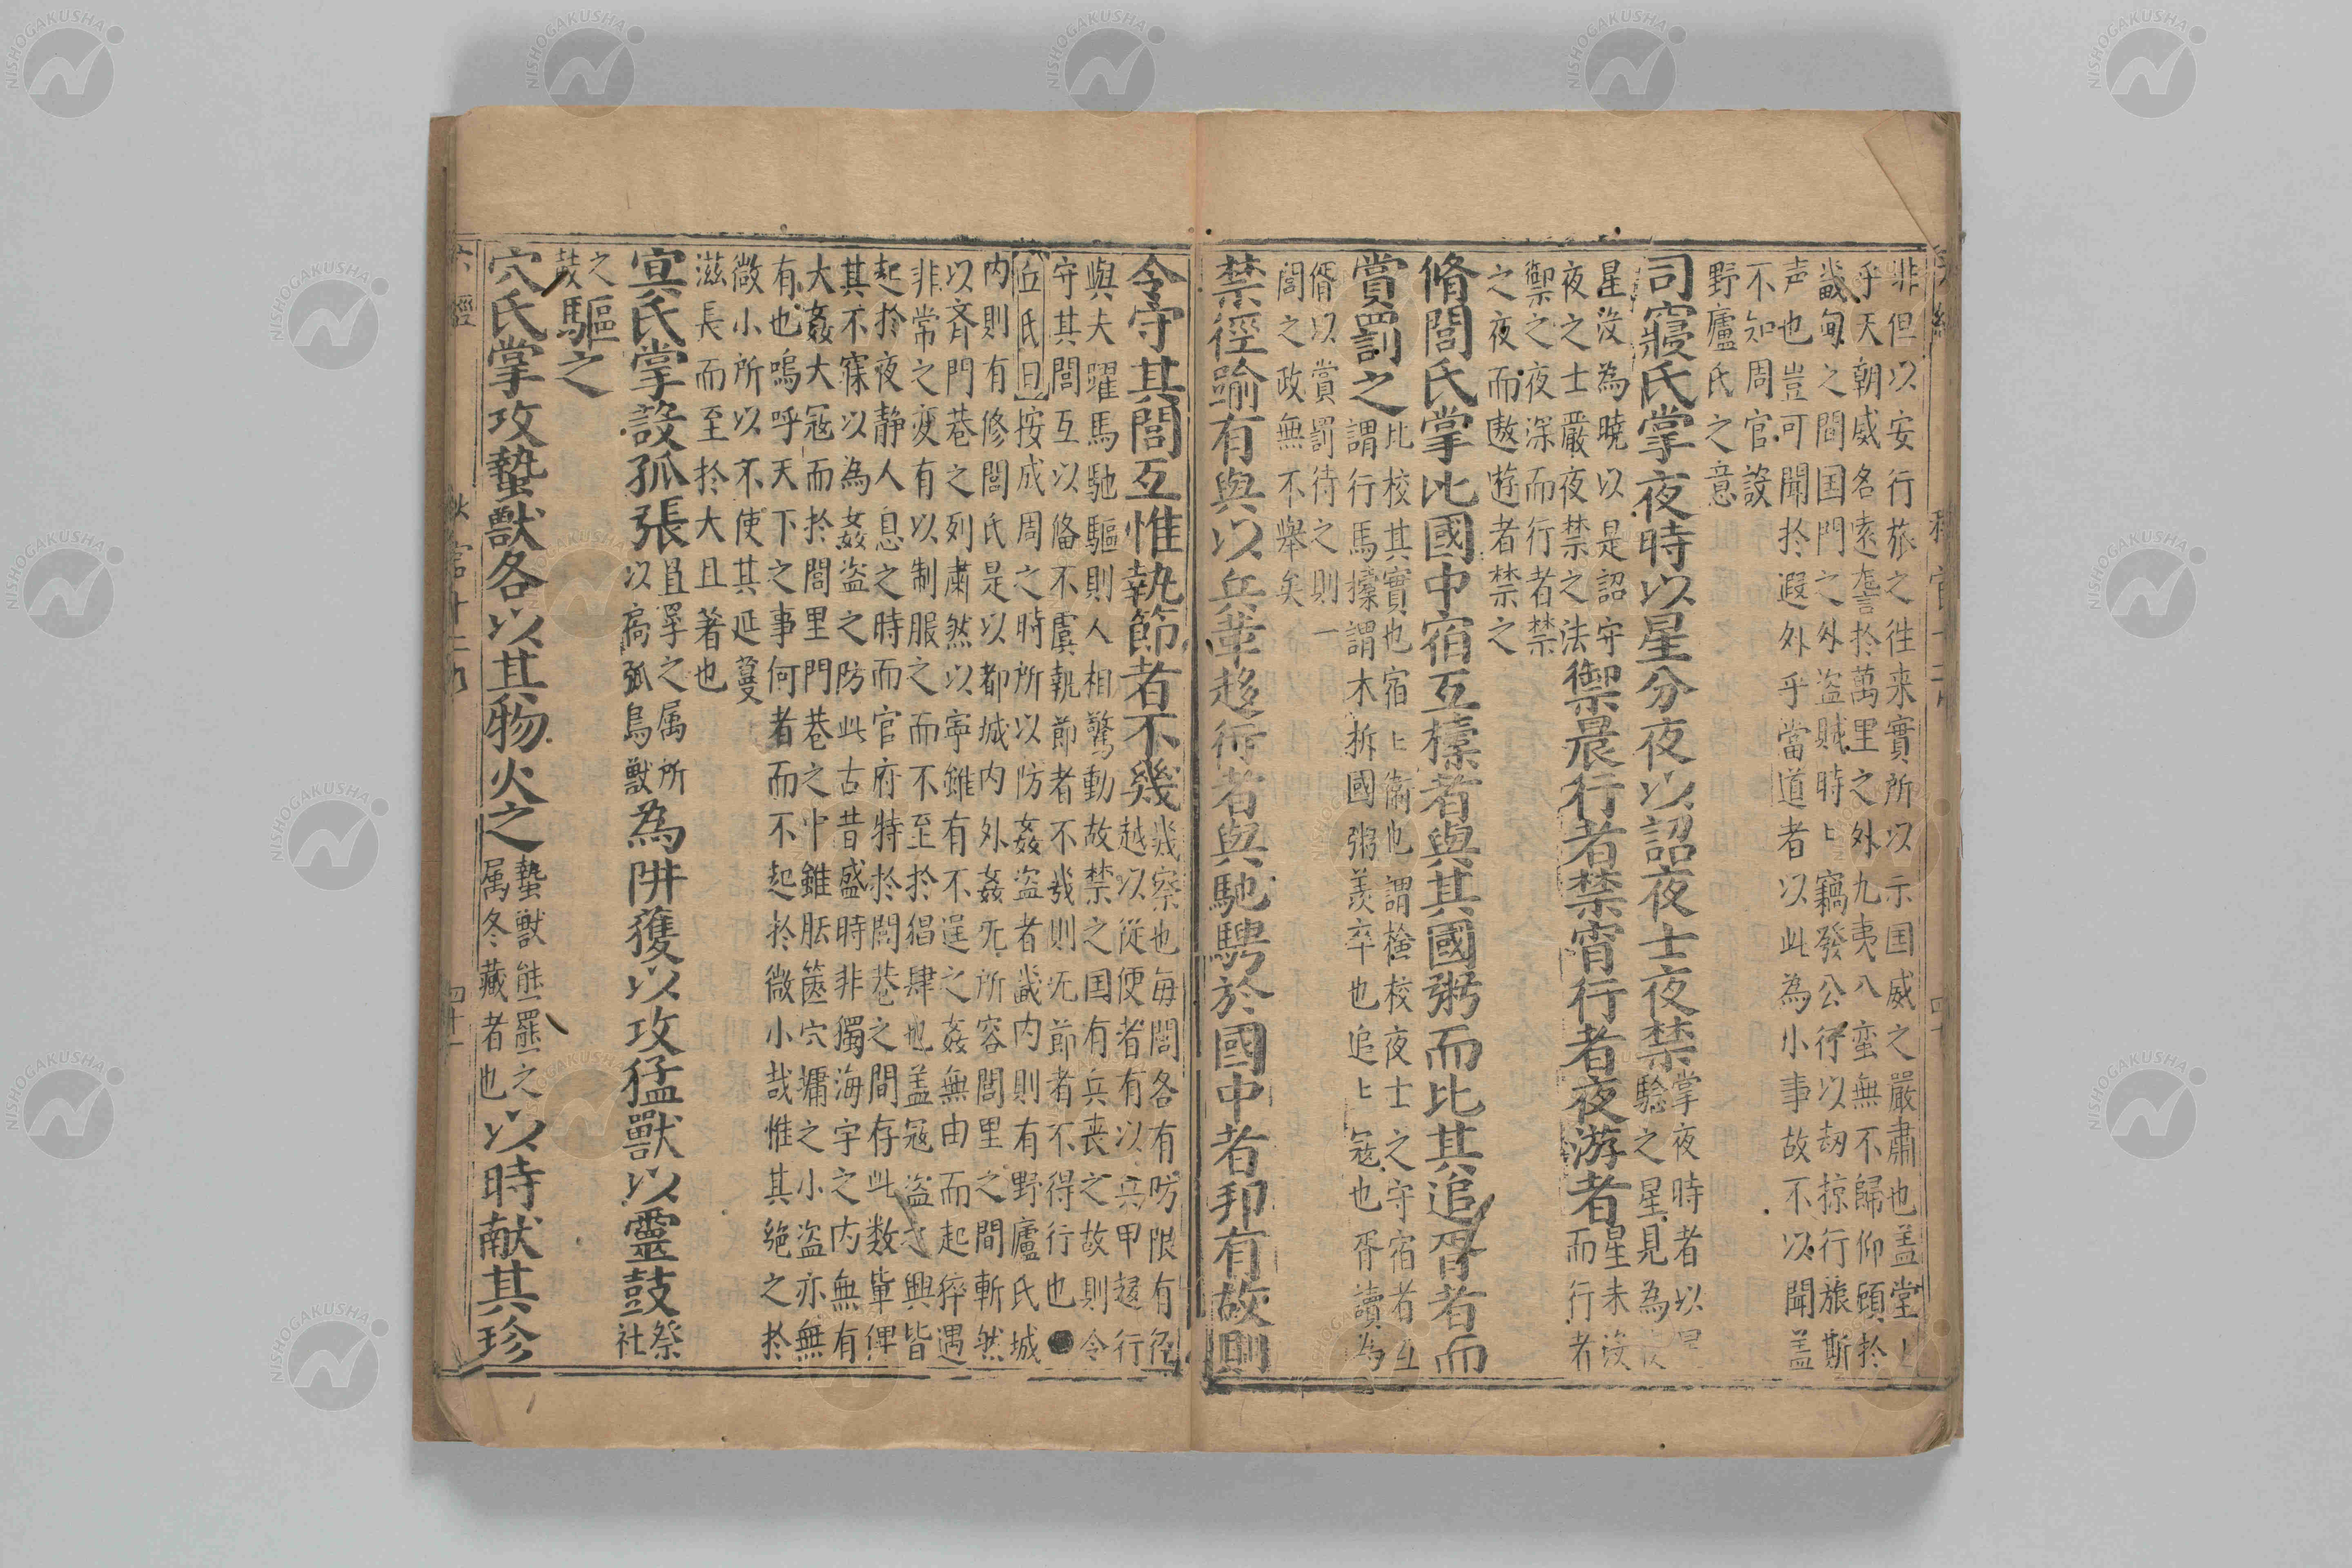 非但以安行旅之徃来實所以示国威之嚴肅也盖堂〻
乎天朝威名遠讋扵萬里之外九夷八蛮無不歸仰顧扵
畿甸之間国門之外盗賊時〻竊發公行以刼掠行旅斯
声也豈可聞扵遐外乎當道者以此為小事故不以聞盖
不知周官設
野廬氏之意
司寤氏掌夜時以星分夜以詔夜士夜禁
掌夜時者以
驗之星見為
星没為曉以是詔守
夜之士嚴夜禁之法
禦晨行者禁宵行者夜游者
星未没
而行者
禦之夜深而行者禁
之夜而遨遊者禁之
脩閭氏掌比國中宿互㯓者與其國粥而比其追胥者而
賞罰之
比校其實也宿〻衛也謂檢校夜士之守宿者互
謂行馬㯓謂木拆國粥羨卒也追〻冦也胥讀為
偦以賞罰待之則一
閭之政無不舉矣
禁徑踰有與以兵革趍行者與馳騁於國中者邦有故則
令守其閭互惟執節者不幾
幾察也每閭各有呀限有徑
越以從便者有以兵甲趍行
與夫躍馬馳驅則人相驚動故禁之国有兵丧之故則令
守其閭互以俻不虞執節者不㡬則无節者不得行也●
丘氏曰按成周之時所以防姦盗者畿内則有野廬氏城
内則有修閭氏是以都城内外姦无所容閭里之間斬然
以齊門巷之列肅然以寜雖有不逞之姦無由而起猝遇
非常之変有以制服之而不至扵猖肆也盖冦盗之興皆
起扵夜静人息之時而官府特扵閭巷之間存此数軰俾
其不寐以為姦盗之防此古昔盛時非獨海宇之内無有
大姦大冦而扵閭里門巷之中雖胠篋穴墉之小盗亦無
有也嗚呼天下之事何者而不起扵微小哉惟其絶之扵
微小所以不使其延蔓
滋長而至扵大且著也
㝠氏掌設弧張
罝罦之属所
以扃弧鳥獸
為阱獲以攻猛獸以靈鼓
祭社
之鼓
驅之
穴氏掌攻蟄獸各以其物火之
蟄獸熊羆之
属冬藏者也
以時献其珍
六經
秋官十二
四十一